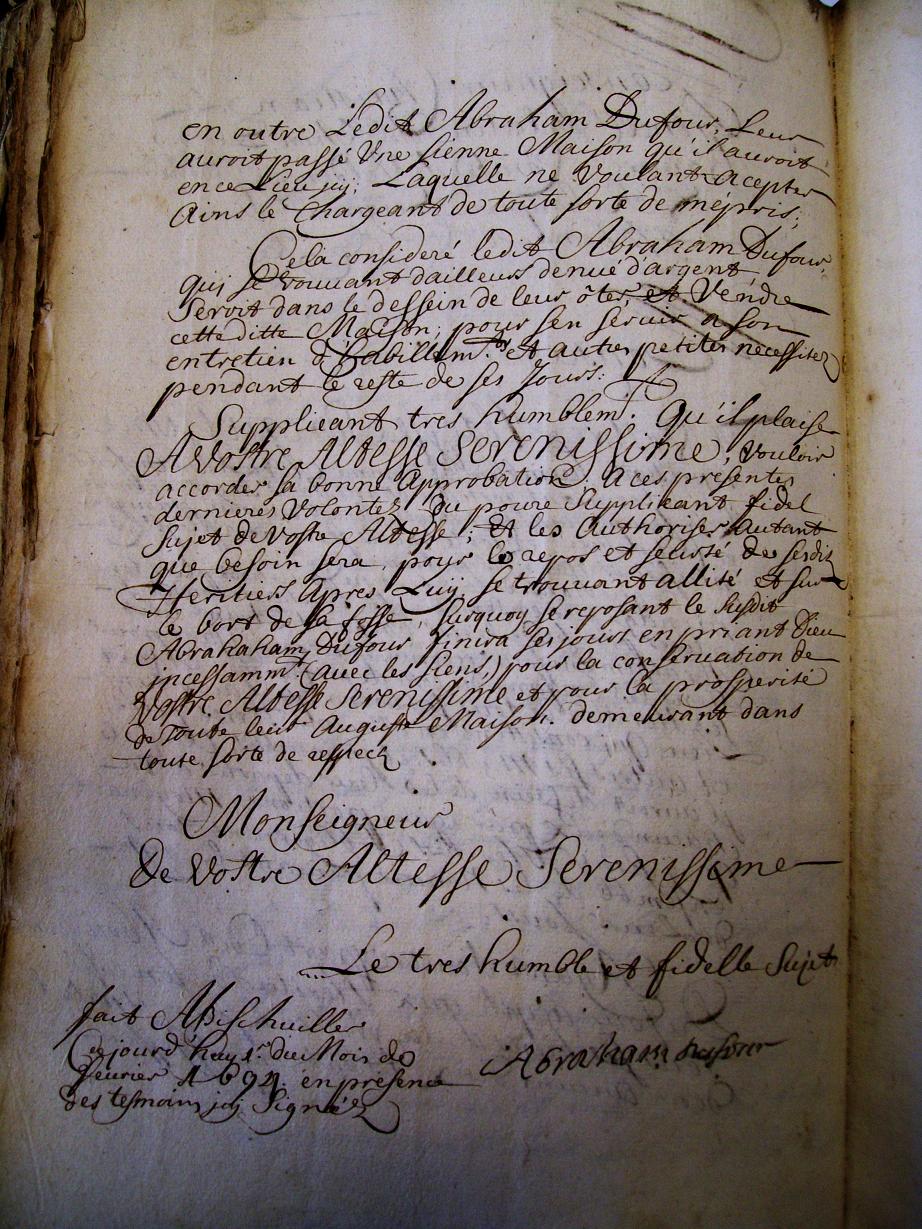 en outre Ledit Abraham Dufour, Leur
auroit passé Vne sienne Maison qu'il auroit
en ce Lieu jcy; Laquelle ne Voulant acepter
Ains le Chargeant de toute sorte de mepris;
Cela consideré ledit Abraham Dufour,
quj se trouvant dailleurs denué d'argent
Seroit dans le dessein de leur ôter, et Vendre
cette ditte Maison, pour sen servir a son
entretien d'habillemts. et autres petites necessitez
pendant le reste de ses Jours.
Suppliant tres humblemt. Qu'il plaise
A Vostre Altesse Serenissime, Vouloir
accorder sa bonne Approbation A ces presentes
dernieres Volontez du povre Suppliant fidel
Sujet de Vostre Altesse; Et les Authoriser autant
que besoin sera, pour le repos et seurté de sesdits
Heritiers Apres Luy, se trouvant allité et sur
le bort de sa fosse, surquoy se reposant le susdit
Abrahaham Dufour finira ses jours en priant Dieu
jncessammt. (avec les siens,) pour la conservation de
Vostre Altesse Serenissime et pour la prosperité
de Toute leur Auguste Maison. demeurant dans
toute sorte de respect
Monseigneur
De Vostre Altesse Serenissime
Le tres humble et fidelle Sujet
fait A Bischuiller
Cejourd'huy 1r. du Mois de
fevrier 1694. en presence
des tesmoins jcy Signéz
Abraham dufour